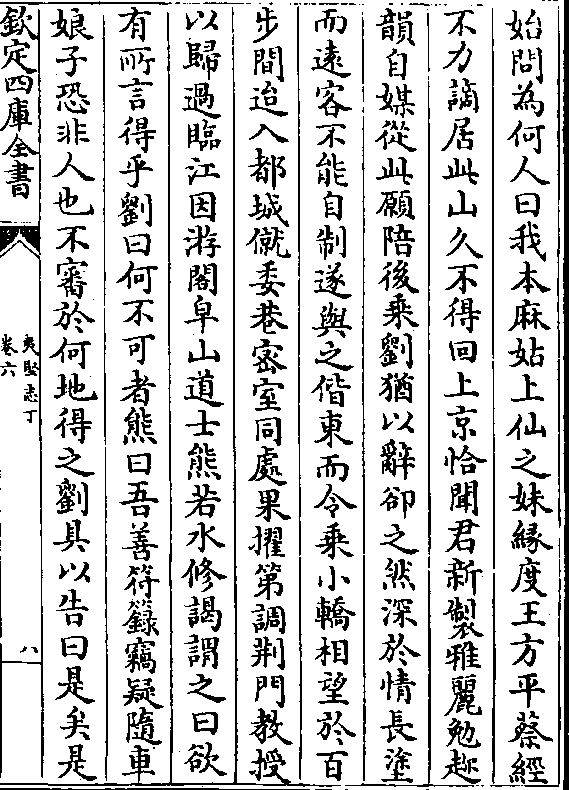 始問為何人曰我本麻姑上仙之妹緣度王方平蔡經
不力謫居此山久不得回上京恰聞君新製雅麗勉趂
韻自媒從此願陪後乘劉猶以辭卻之然深於情長塗
而遠客不能自制遂與之偕東而令乘小轎相望於百
步間迨入都城僦委巷密室同處果擢第調荆門教授
以歸過臨江因游閤皁山道士熊若水修謁謂之曰欲
有所言得乎劉曰何不可者熊曰吾善符籙竊疑隨車
娘子恐非人也不審於何地得之劉具以告曰是矣是
欽定四庫全書
夷堅志丁
卷六
八